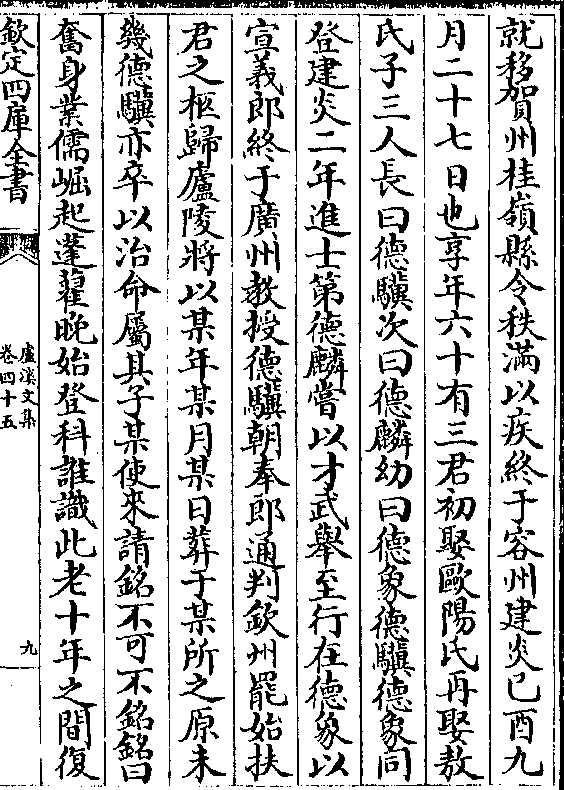 就移賀州桂嶺縣令秩滿以疾終于容州建炎已酉九
月二十七日也享年六十有三君初娶歐陽氏再娶敖
氏子三人長曰德驥次曰德麟幼曰德象德驥德象同
登建炎二年進士第德麟嘗以才武舉至行在德象以
宣義郎終于廣州教授德驥朝奉郎通判欽州罷始扶
君之柩歸廬陵將以某年某月某日葬于某所之原未
幾德驥亦卒以治命屬其子某使來請銘不可不銘銘曰
奮身業儒崛起蓬藋晚始登科誰識此老十年之間復
欽定四庫全書
盧溪文集
卷四十五
九